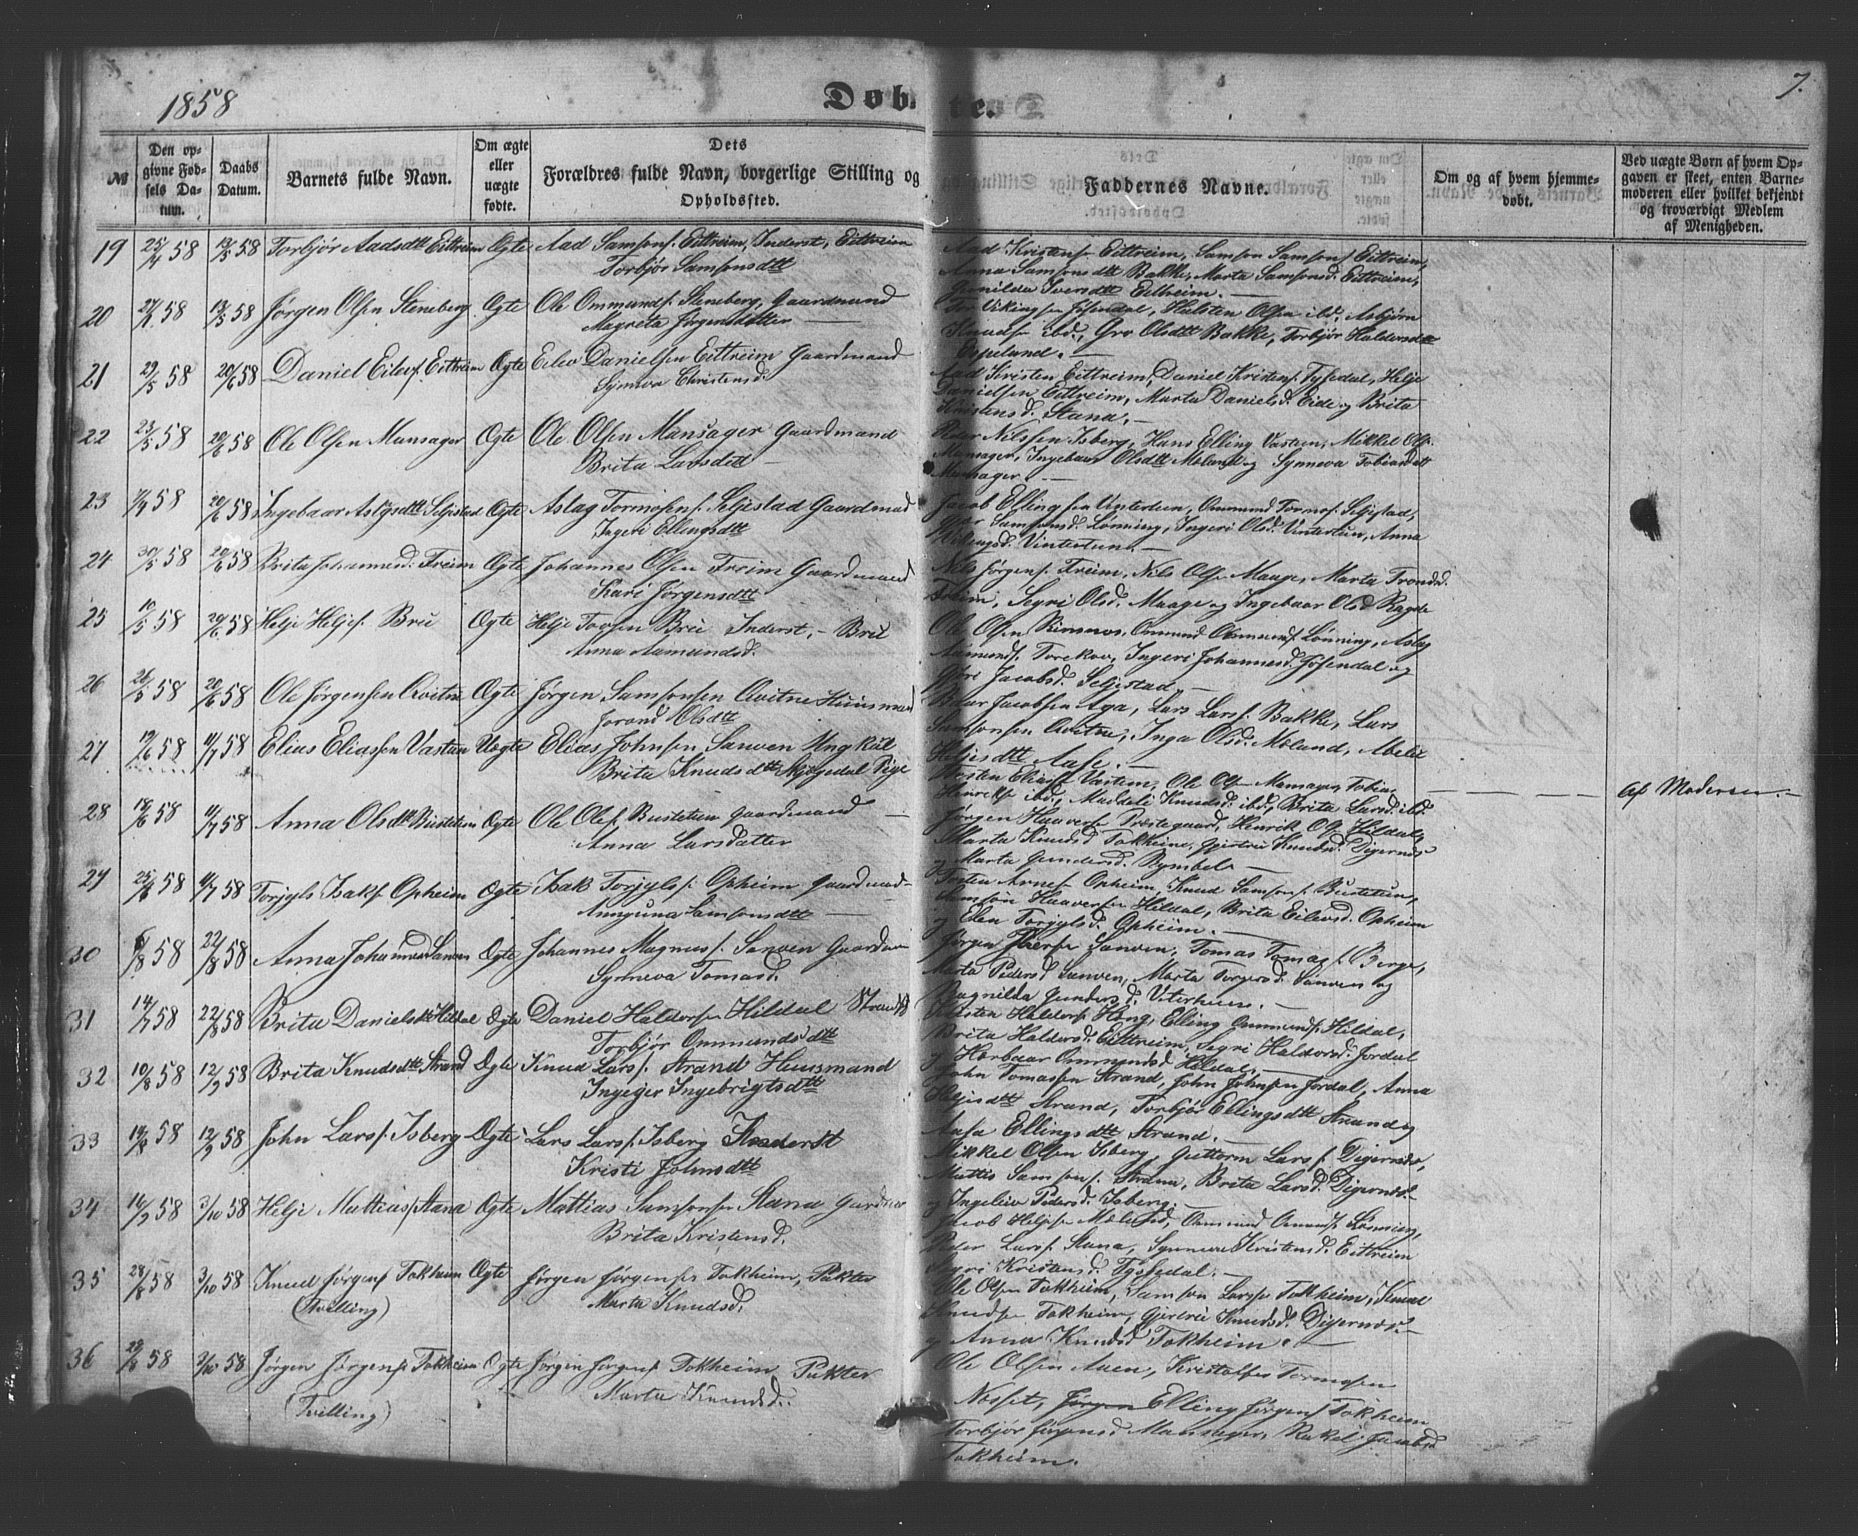 1858
Døbte.
7.
№
Den opgivne Fødsels Datum.
Daabs Datum.
Barnets fulde Navn.
Om ægte eller uægte fødte.
Dets Forældres fulde Navn, borgerlige Stilling og Opholdssted.
Faddernes Navne.
Om og af hvem hjemmedøbt.
Ved uægte Børn af hvem Opgaven er skeet, enten Barnemoderen eller hvilket bekjendt og troværdigt Medlem af Menigheden.
19 25/4 58 13/5 58 Torbjør Aadsdtt Eittreim Ægte Aad Samsons. Eittreim, Inderst, Eittreim
Torbjør Samsonsdtt
Aad Kristense Eittreim, Samson Samsons. Eittreim,
Anna Samsonsdtt Bakke, Marta Samsonsd. Eittreim,
Gunilda Iversdtt Eittreim. —
20 58 13/5 58 Jørgen Olsen Steneberg Ægte Ole Ommunds. Steneberg, Gaardmand
Magreta Jørgensdatter —
Tor Vikingsen Jøsendal, Halsten Olsen ibd., Asbjørn
Knudsen ibd., Gro Olsdtt Bakke, Torbjør Haldorsdtt
Espeland. —
21 29/5 58 20/6 58 Daniel Eilevs. Eittreim Ægte Eilev Danielsen Eittreim Gaardmand
Synneva Christensd.
Aad Kristen Eittreim, Daniel Kristens. Tysedal, Helje
Danielsen Eittreim, Marta Danielsd. Eide og Brita
Kristensd. Stana. —
22 23/5 58 20/6 58 Ole Olsen Mansager Ægte Ole Olsen Mansager Gaardmand
Brita Larsdtt —
Peder Nilssen Isberg, Hans Elling Vastun, Mikkel Ols.
Mansager, Ingebaar Olsdtt Moland og Synneva Tobiasdtt
Mansager. —
23 58 20/6 58 Ingebaar Aslagsdtt Seljestad Ægte Aslag Tormosens. Seljestad Gaardmand
Ingeri Ellingsdtt
Jacob Ellingsen Vintertun, Ommund Tormos. Seljestad,
Samsonsd. Lønning, Ingeri Olsd. Vintertun, Anna
Vintertun. —
24 30/5 58 20/6 58 Brita Johannesd. Freim Ægte Johannes Olsen Freim Gaardmand
Kari Jørgensdtt
Nils Jørgens. Freim, Nils Olsen Maage, Marta Trondsd.
Freim, Segri Olsd. Maage og Ingebaar Olsd. Ragde
25 10/5 58 20/6 58 Helje Heljes. Brue Ægte Helje Torsen Bru Inderst, – Bru
Anna Aamundsd.
Ole Olsen Ommund Ommunds. Lønning, Aslag
Aamunds. Ingeri Johannesd. Jøsendal og
Jacobsd. Seljestad. —
26 26/5 58 20/6 58 Ole Jørgensen Qvitne Ægte Jørgen Samsonsen Qvitne Huusmand
Jorand Olsdtt
Jacobsen Aga, Lars Lars. Bakke, Lars
Samsonsen Qvitne, Inga Olsd. Moland, Abelie
Heljesdtt Aase. —
27 19/6 58 4/7 58 Elias Eliassen Vastun Uægte Elias Johnsen Sanven Ungkal
Brita Knudsdtt Skjegedal Pige
Torsten Elias. Vastun, Ole Ols. Mansager, Tobias
Henriks. ibd., Maddeli Knudsd. ibd., Brita Larsd. ibd.
af Moderen —
28 18/6 58 4/7 58 Anna Olsdtt Bustetun Ægte Ole Ols. Bustetun Gaardmand —
Anna Larsdatter
Jørgen Haavers. Prestegaard, Henrik Ols. Hildal,
Marta Knudsd. Tokheim, Gjertrue Knudsd. Digernes
og Marta Gundersd. —
29 58 4/7 58 Torjyls Isaks. Opheim Ægte Isak Torjyls. Opheim Gaardmand
Samsonsdtt —
Torsten Arnes. Opheim, Knud Samsons. Bustetun,
Samson Haavers. Hildal, Brita Eilevsd. Opheim
og Elen Torjylsd. Opheim. —
30 6/8 58 22/8 58 Anna Johannesd. Sanven Ægte Johannes Magnus. Sanven Gaardm
Synneva Tomasd.
Jørgen Sanven, Tomas Tomas. Berge,
Marta Pedersd. Sanven, Marta Torgersd. Sanven og
Ragnilda Gundersd. —
31 14/7 58 22/8 58 Brita Danielsdtt Hildal Ægte Daniel Haldorsen Hildal
Torbjør Ommundsdtt
Haldors. Elling Ommunds. Hildal,
Brita Haldorsd. Eittreim, Segri Haldorsd. Jordal
og Herbaar Ommundsd. Hildal. —
32 10/8 58 12/9 58 Brita Knudsdtt Strand Ægte Knud Lars. Strand Huusmand
Ingeger Ingebrigtsdtt
John Tomassen Strand, John Johnsen Jordal, Anna
Heljesdtt Strand, Torbjør Ellingsdtt Strand og
Aasa Ellingsdtt Strand. —
33 58 12/9 58 John Lars. Isberg Ægte Lars Lars. Isberg Inderst
Kristi Johnsdtt
Mikkel Olsen Isberg, Guttorm Lars. Digernes,
Mattis Samsons. Strana, Brita Larsd. Digernes
og Ingeleiv Pedersd. Isberg.
34 16/9 58 3/10 58 Helje Mattias. Stana Ægte Mattias Samsonsen Stana Gardm
Brita Kristensd.
Jacob Heljes. Moland, Ommund Ommunds. Lønning,
Peder Lars. Stana, Synneva Kristensd. Eittreim
Segri Kristensd. Tyssedal. —
35 28/8 58 3/10 58 Knud Jørgens. Tokheim Ægte Jørgen Jørgensen Tokheim, Pakter
(Tvilling) Marta Knudsd.
Ole Olsen Tokheim, Samson Larsen Tokheim, Knud
Knudsen Tokheim, Gjertrue Knudsd. Digernes
og Anna Knudsd. Tokheim. —
36 28/8 58 3/10 58 Jørgen Jørgens. Tokheim Ægte Jørgen Jørgens. Tokheim Pakter
(Tvilling) Marta Knudsd.
Ole Olsen Aaen, Kristoffer Tormosen
Elling Jørgens. Tokheim
Torbjør Jørgensd. Mansager, Rakel Jacobsd.
Tokheim.